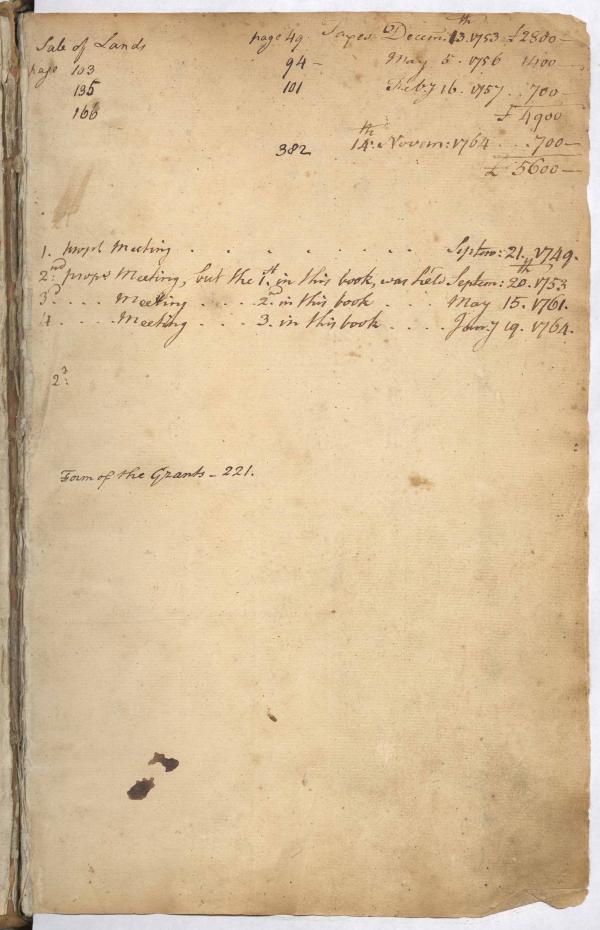 Sale of Lands page 49. Taxes Decem: 13.th 1753 £2800—
page 103 94 — May 5. 1756 1400
135 101 Feb.y 16. 1757 . . 700—
166 £ 4900
382 14.th Novem: 1764 . . . 700—
£ 5600—
1. prop.l Meeting . . . . . . . . Septem: 21. 1749.
2:nd prop.l Meeting, but the 1.st in this book, was held Septem: 20.th 1753
3.d . . . Meeting . . . . 2.d in this book . . . . May 15. 1761.
4 . . . . Meeting . . . . 3. in this book . . . . Jan.y 19. 1764.
2.d
Form of the Grants — 221.